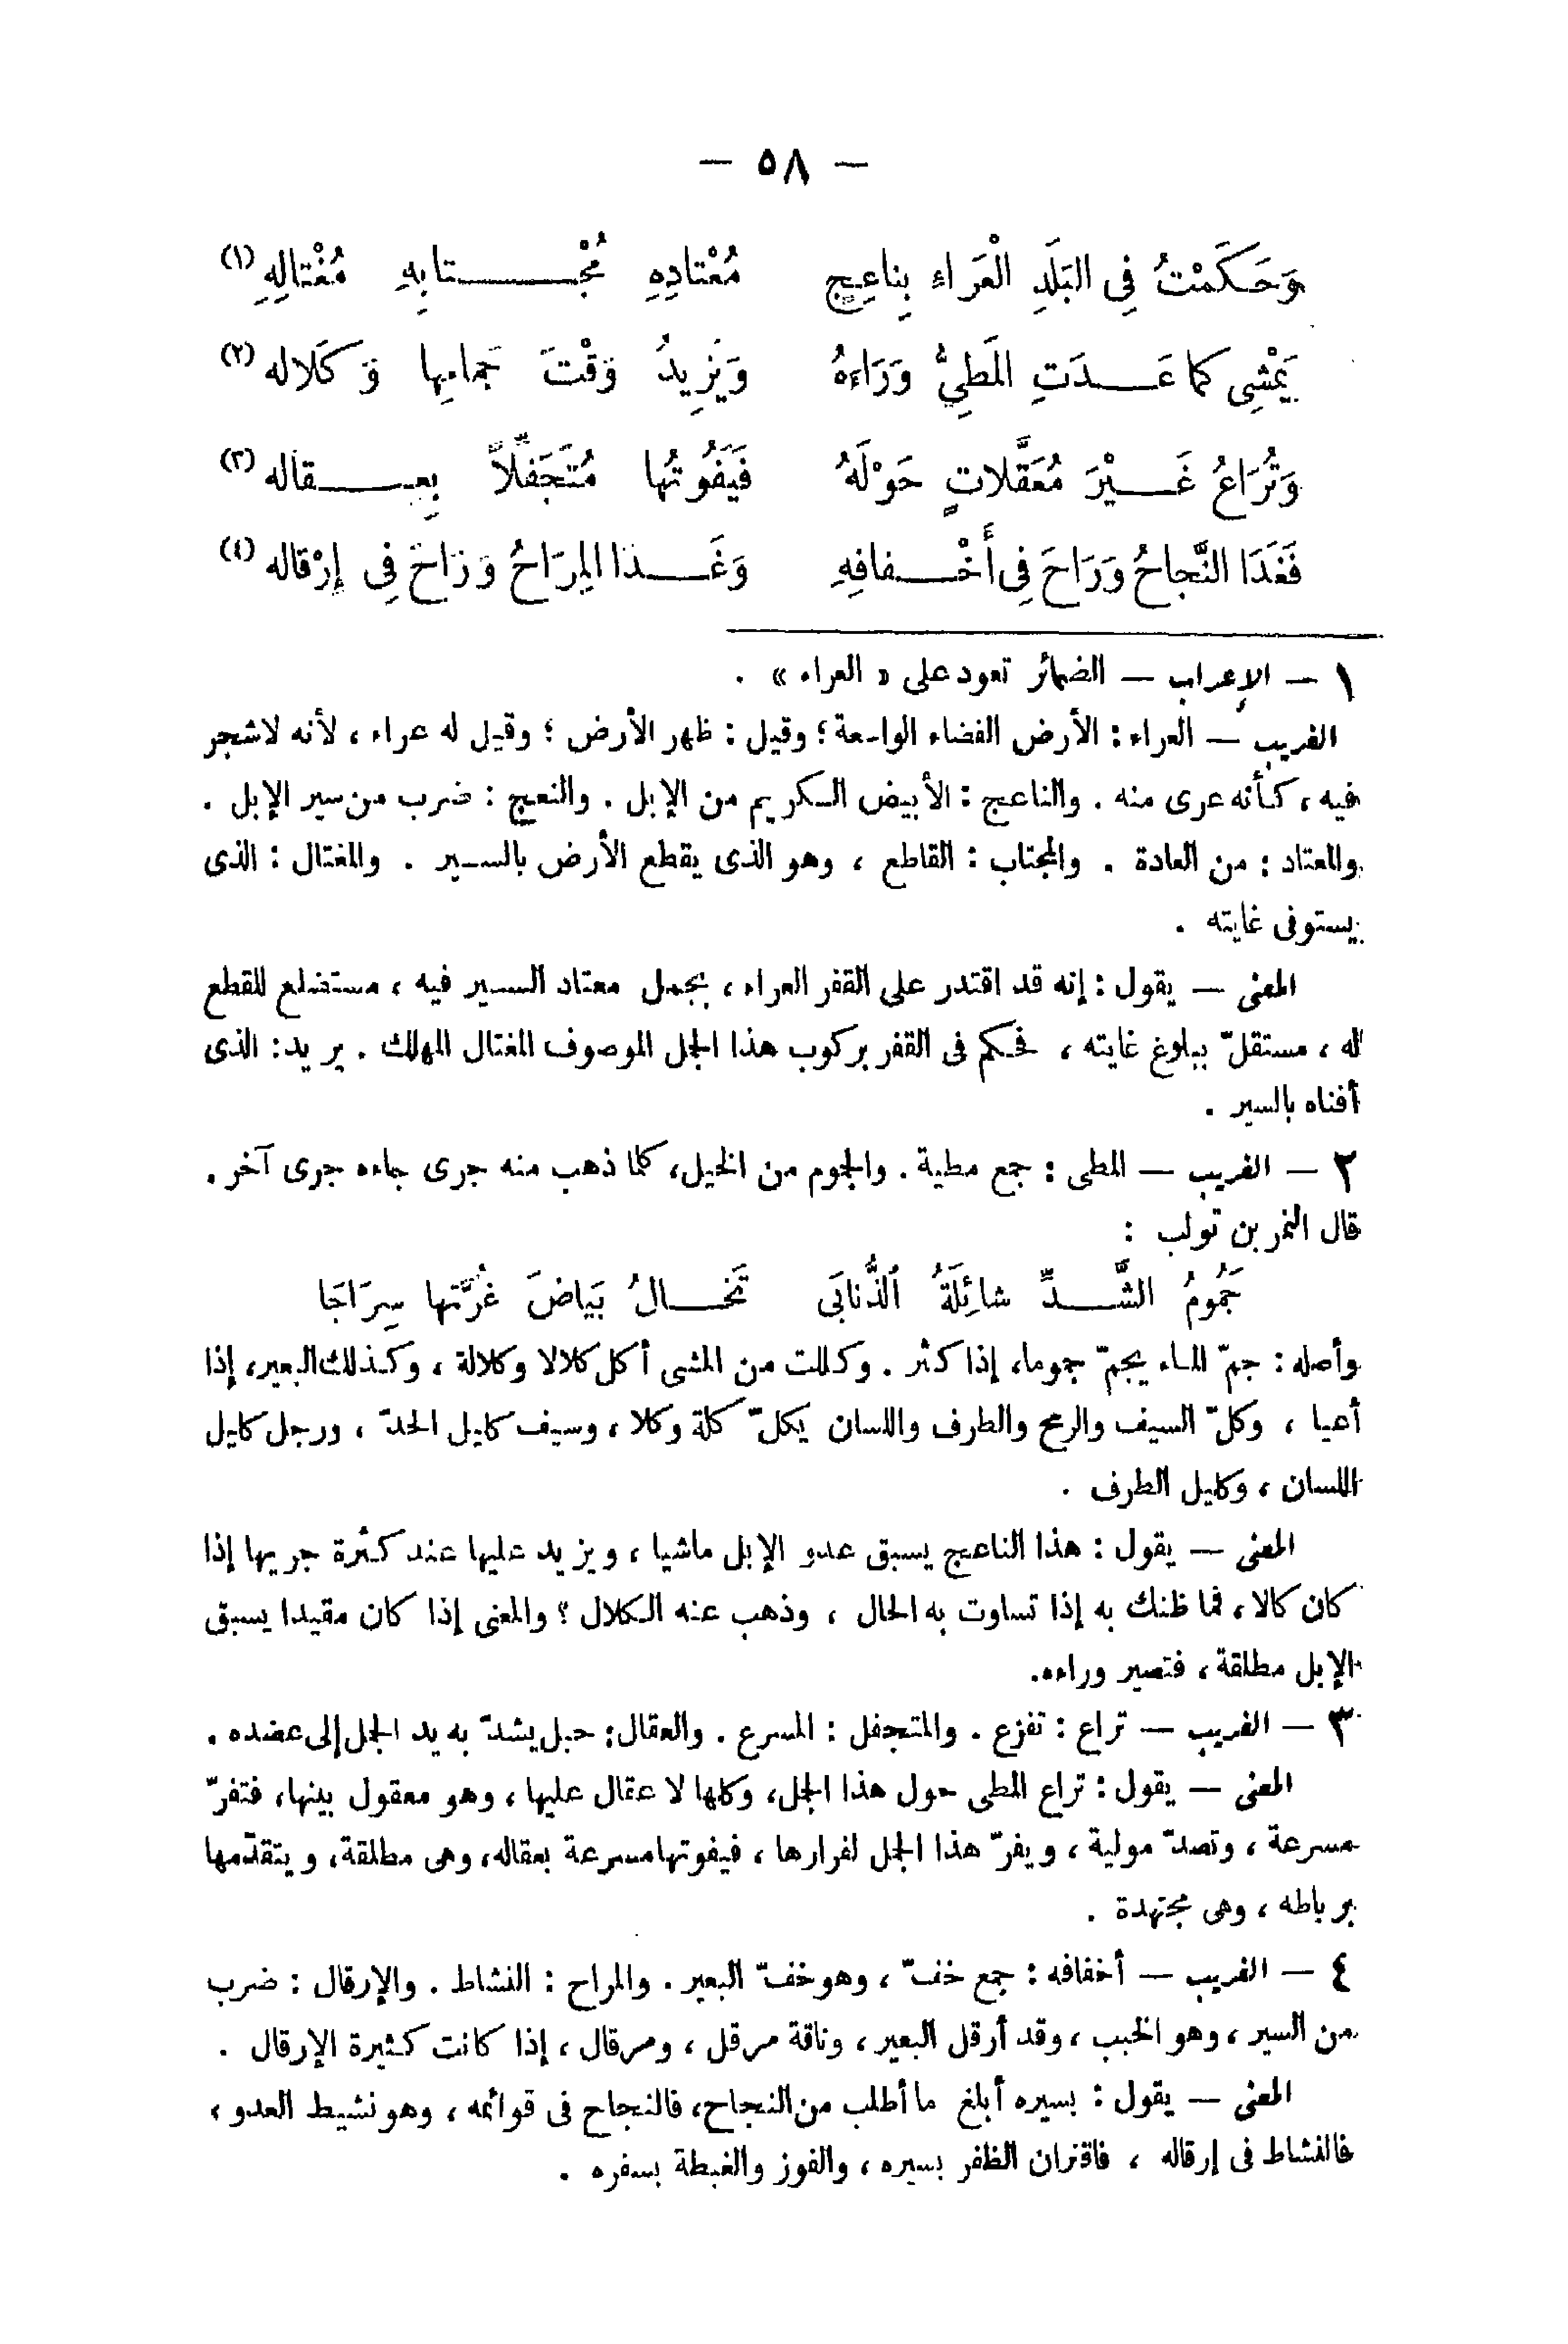 — ٥٨ —
وَحَكَمْتُ فِى البَلَدِ الْعَرَاءِ بِناعِجٍ مُعْتادِهِ مُجْتابِهِ مُغْتالِهِ (١)
يَمْشِى كما عَدَتِ المَطِىُّ وَرَاءهُ وَيَزِيدُ وَقْتَ جَمامِها وَكَلاله (٢)
وَتُرَاعُ غَيْرَ مُعَقَّلاتٍ حَوْلَهُ فَيَفُوتُها مُتَجَفِّلاً بِعِقاله (٣)
فَغَدَا النَّجاحُ وَرَاحَ فِى أَخْفافِهِ وَغَدَا المِرَاحُ وَرَاحَ فِى إرْقاله (٤)
١ — الإعراب — الضمائر تعود على « العراء » .
الغريب — العراء : الأرض الفضاء الواسعة ؛ وقيل : ظهر الأرض ؛ وقيل له عراء ، لأنه لاشجر
فيه ، كأنه عرى منه . والناعج : الأبيض الكريم من الإبل . والنعج : ضرب من سير الإبل .
والمعتاد : من العادة . والمجتاب : القاطع ، وهو الذى يقطع الأرض بالسير . والمغتال : الذى
يستوفى غايته .
المعنى — يقول : إنه قد اقتدر على القفر العراء ، بجمل معتاد السير فيه ، مستضلع للقطع
له ، مستقلّ ببلوغ غايته ، فحكم فى القفر بركوب هذا الجمل الموصوف المغتال المهلك . يريد : الذى
أفناه بالسير .
٢ — الغريب — المطى : جمع مطية . والجموم من الخيل ، كلما ذهب منه جرى جاءه جرى آخر .
قال النمر بن تولب :
جَمُومُ الشَّدِّ شائِلَةُ ٱلذُّنابَى تَخالُ بَيَاضَ غُرَّتها سِرَاجَا
وأصله : جمّ الماء يجمّ جموما ، إذا كثر . وكللت من المشى أكل كلالا وكلالة ، وكذلك البعير ، إذا
أعيا ، وكلّ السيف والرمح والطرف واللسان يكلّ كلة وكلا ، وسيف كليل الحدّ ، ورجل كليل
اللسان ، وكليل الطرف .
المعنى — يقول : هذا الناعج يسبق عدو الإبل ماشيا ، ويزيد عليها عند كثرة جريها إذا
كان كالا ، فما ظنك به إذا تساوت به الحال ، وذهب عنه الكلال ؟ والمعنى إذا كان مقيدا يسبق
الإبل مطلقة ، فتصير وراءه.
٣ — الغريب — تراع : تفزع . والمتجفل : المسرع . والعقال : حبل يشدّ به يد الجمل إلى عضده .
المعنى — يقول : تراع المطى حول هذا الجمل ، وكلها لا عقال عليها ، وهو معقول بينها ، فتفرّ
مسرعة ، وتصدّ مولية ، ويفرّ هذا الجمل لفرارها ، فيفوتها مسرعة بعقاله ، وهى مطلقة ، ويتقدّمها
برباطه ، وهى مجتهدة .
٤ — الغريب — أخفافه : جمع خفّ ، وهو خفّ البعير . والمراح : النشاط . والإرقال : ضرب
من السير ، وهو الخبب ، وقد أرقل البعير ، وناقة مرقل ، ومرقال ، إذا كانت كثيرة الإرقال .
المعنى — يقول : بسيره أبلغ ما أطلب من النجاح ، فالنجاح فى قوائمه ، وهو نشيط العدو ،
فالنشاط فى إرقاله ، فاقتران الظفر بسيره ، والفوز والغبطة بسفره .